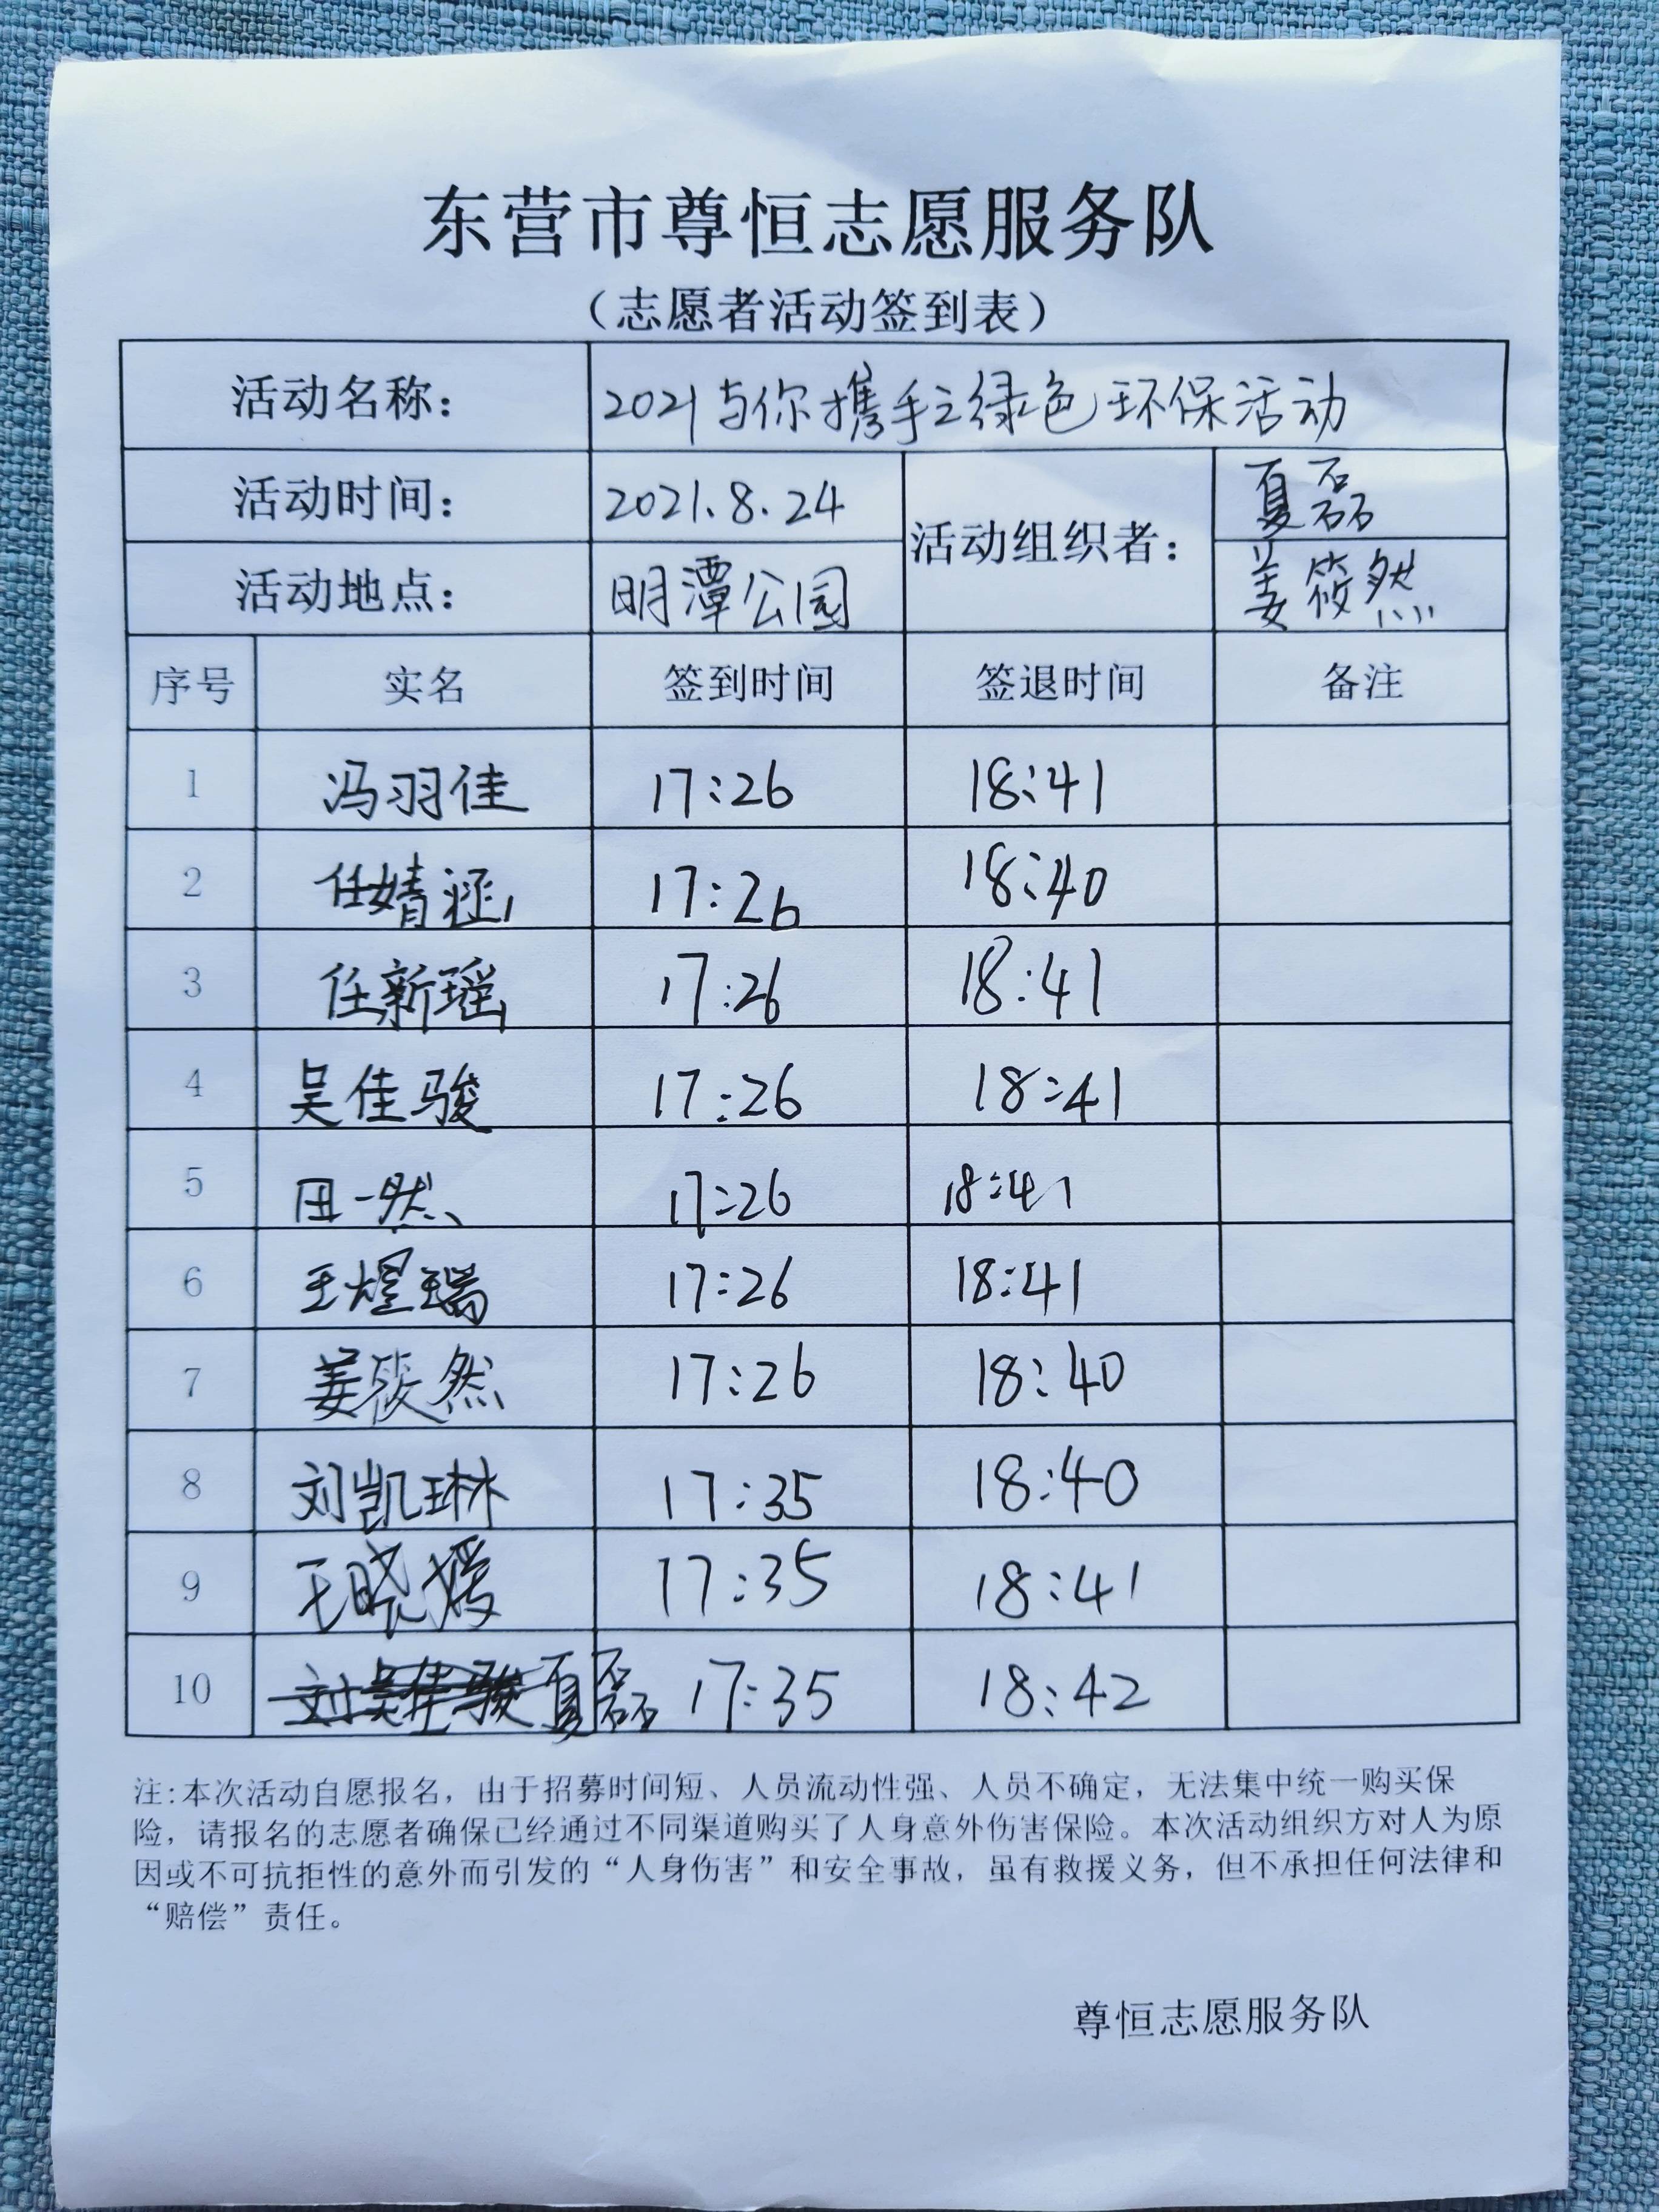 东营市尊恒志愿服务队
（志愿者活动签到表）
活动名称： 2021与你携手之绿色环保活动
活动时间： 2021.8.24 活动组织者： 夏磊
活动地点： 明潭公园 姜筱然
序号 实名 签到时间 签退时间 备注
1 冯羽佳 17:26 18:41
2 任婧涵 17:26 18:40
3 任新瑶 17:26 18:41
4 吴佳骏 17:26 18:41
5 田一然 17:26 18:41
6 王煜瑞 17:26 18:41
7 姜筱然 17:26 18:40
8 刘凯琳 17:35 18:40
9 王晓媛 17:35 18:41
10 夏磊 17:35 18:42
注:本次活动自愿报名，由于招募时间短、人员流动性强、人员不确定，无法集中统一购买保
险，请报名的志愿者确保已经通过不同渠道购买了人身意外伤害保险。本次活动组织方对人为原
因或不可抗拒性的意外而引发的“人身伤害”和安全事故，虽有救援义务，但不承担任何法律和
“赔偿”责任。
尊恒志愿服务队